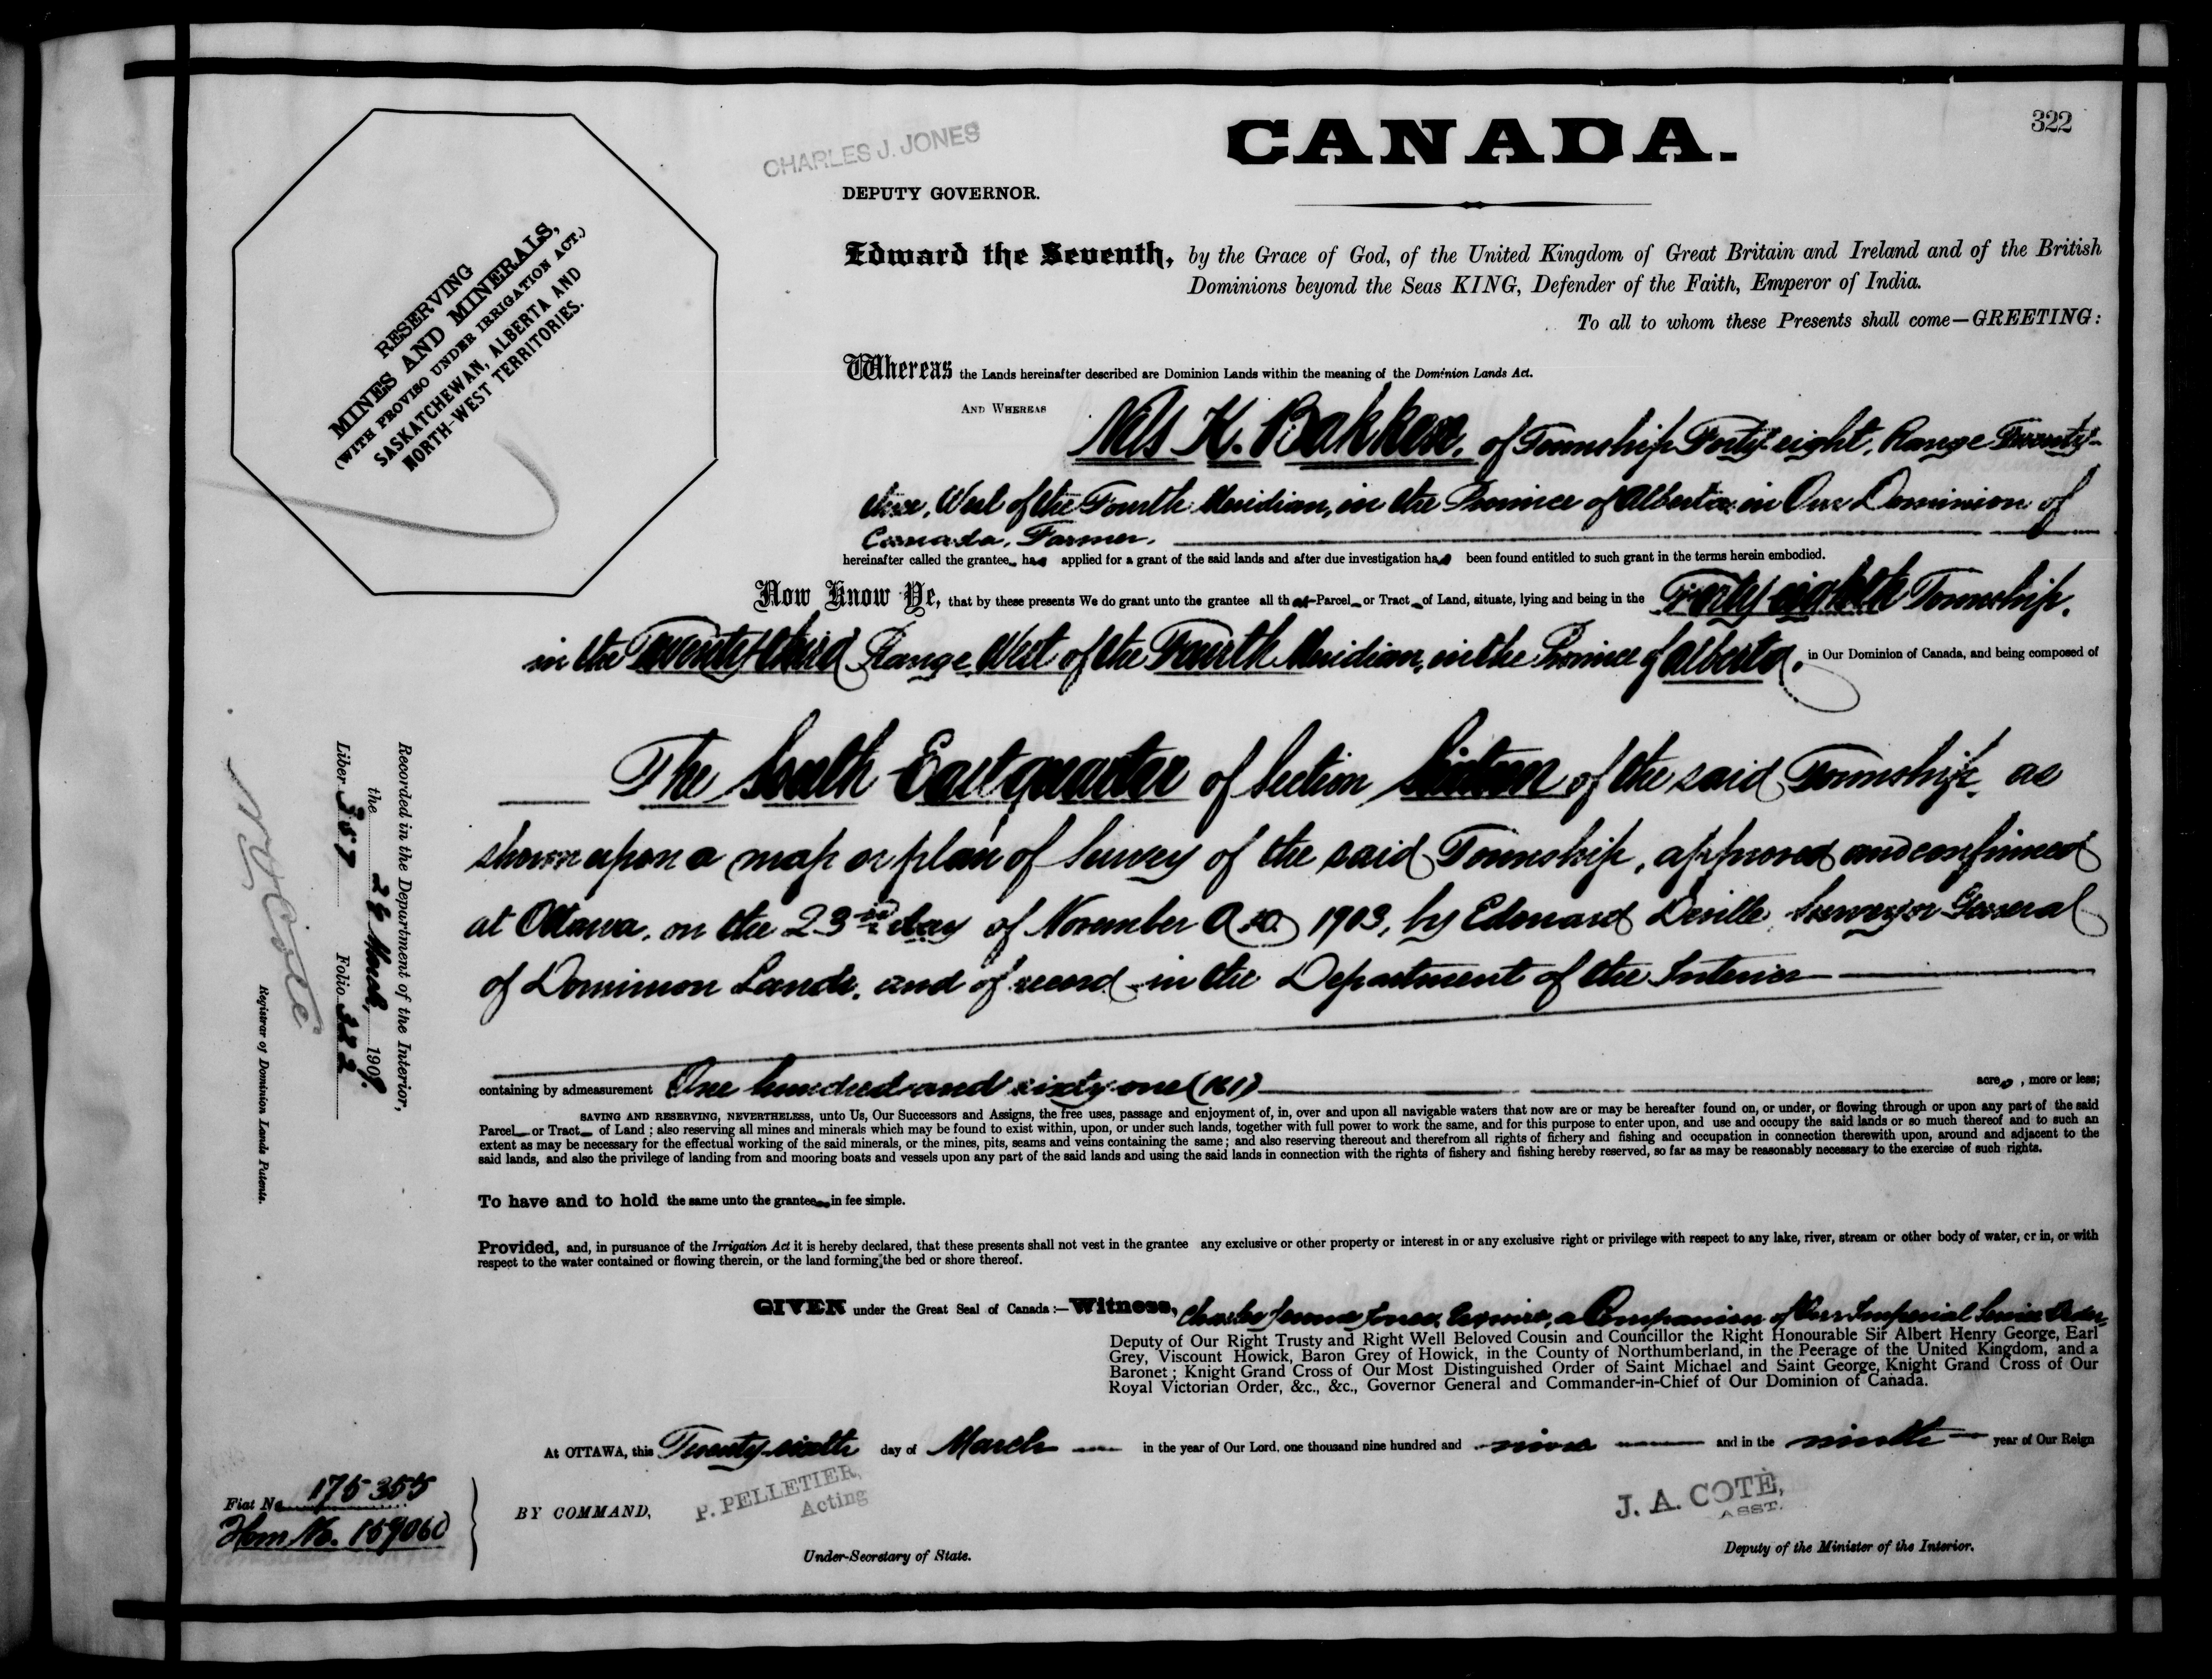 322
CHARLES J. JONES
CANADA.
DEPUTY GOVERNOR.
RESERVING
MINES AND MINERALS,
(WITH PROVISO UNDER IRRIGATION ACT.)
SASKATCHEWAN, ALBERTA AND
NORTH-WEST TERRITORIES.
Edward the Seventh, by the Grace of God, of the United Kingdom of Great Britain and Ireland and of the British
Dominions beyond the Seas KING, Defender of the Faith, Emperor of India.
To all to whom these Presents shall come—GREETING:
Whereas the Lands hereinafter described are Dominion Lands within the meaning of the Dominion Lands Act.
AND WHEREAS Nels K. Bakken, of Township Forty-eight, Range Twenty-
three, West of the Fourth Meridian, in the Province of Alberta in Our Dominion of
Canada, Farmer.
hereinafter called the grantee has applied for a grant of the said lands and after due investigation has been found entitled to such grant in the terms herein embodied.
Now Know Ye, that by these presents We do grant unto the grantee all that Parcel or Tract of Land, situate, lying and being in the Forty eighth Township,
in the Twenty third Range, West of the Fourth Meridian, in the Province of Alberta, in Our Dominion of Canada, and being composed of
The South East quarter of Section Sixteen of the said Township, as
shown upon a map or plan of Survey of the said Township, approved and confirmed
at Ottawa, on the 23rd day of November A.D. 1903, by Edouard Deville, Surveyor General
of Dominion Lands, and of record in the Department of the Interior
containing by admeasurement One hundred and sixty-one (161) acres, more or less;
SAVING AND RESERVING, NEVERTHELESS, unto Us, Our Successors and Assigns, the free uses, passage and enjoyment of, in, over and upon all navigable waters that now are or may be hereafter found on, or under, or flowing through or upon any part of the said
Parcel or Tract of Land ; also reserving all mines and minerals which may be found to exist within, upon, or under such lands, together with full power to work the same, and for this purpose to enter upon, and use and occupy the said lands or so much thereof and to such an
extent as may be necessary for the effectual working of the said minerals, or the mines, pits, seams and veins containing the same ; and also reserving thereout and therefrom all rights of firhery and fishing and occupation in connection therewith upon, around and adjacent to the
said lands, and also the privilege of landing from and mooring boats and vessels upon any part of the said lands and using the said lands in connection with the rights of fishery and fishing hereby reserved, so far as may be reasonably necessary to the exercise of such rights.
To have and to hold the same unto the grantee in fee simple.
Provided, and, in pursuance of the Irrigation Act it is hereby declared, that these presents shall not vest in the grantee any exclusive or other property or interest in or any exclusive right or privilege with respect to any lake, river, stream or other body of water, or in, or with
respect to the water contained or flowing therein, or the land forming the bed or shore thereof.
GIVEN under the Great Seal of Canada :—Witness, Charles Jerome Jones, Esquire, a Companion of Our Imperial Service Order,
Deputy of Our Right Trusty and Right Well Beloved Cousin and Councillor the Right Honourable Sir Albert Henry George, Earl
Grey, Viscount Howick, Baron Grey of Howick, in the County of Northumberland, in the Peerage of the United Kingdom, and a
Baronet ; Knight Grand Cross of Our Most Distinguished Order of Saint Michael and Saint George, Knight Grand Cross of Our
Royal Victorian Order, &c., &c., Governor General and Commander-in-Chief of Our Dominion of Canada.
At OTTAWA, this Twenty-sixth day of March in the year of Our Lord, one thousand nine hundred and nine and in the ninth year of Our Reign
BY COMMAND,
P. PELLETIER,
Acting
Under-Secretary of State.
J. A. COTÉ,
ASST.
Deputy of the Minister of the Interior.
Fiat No. 175355
Hom No. 159060
Recorded in the Department of the Interior,
the 26 March, 1909.
Liber 357 Folio 322
N. O. Coté
Registrar of Dominion Lands Patents.